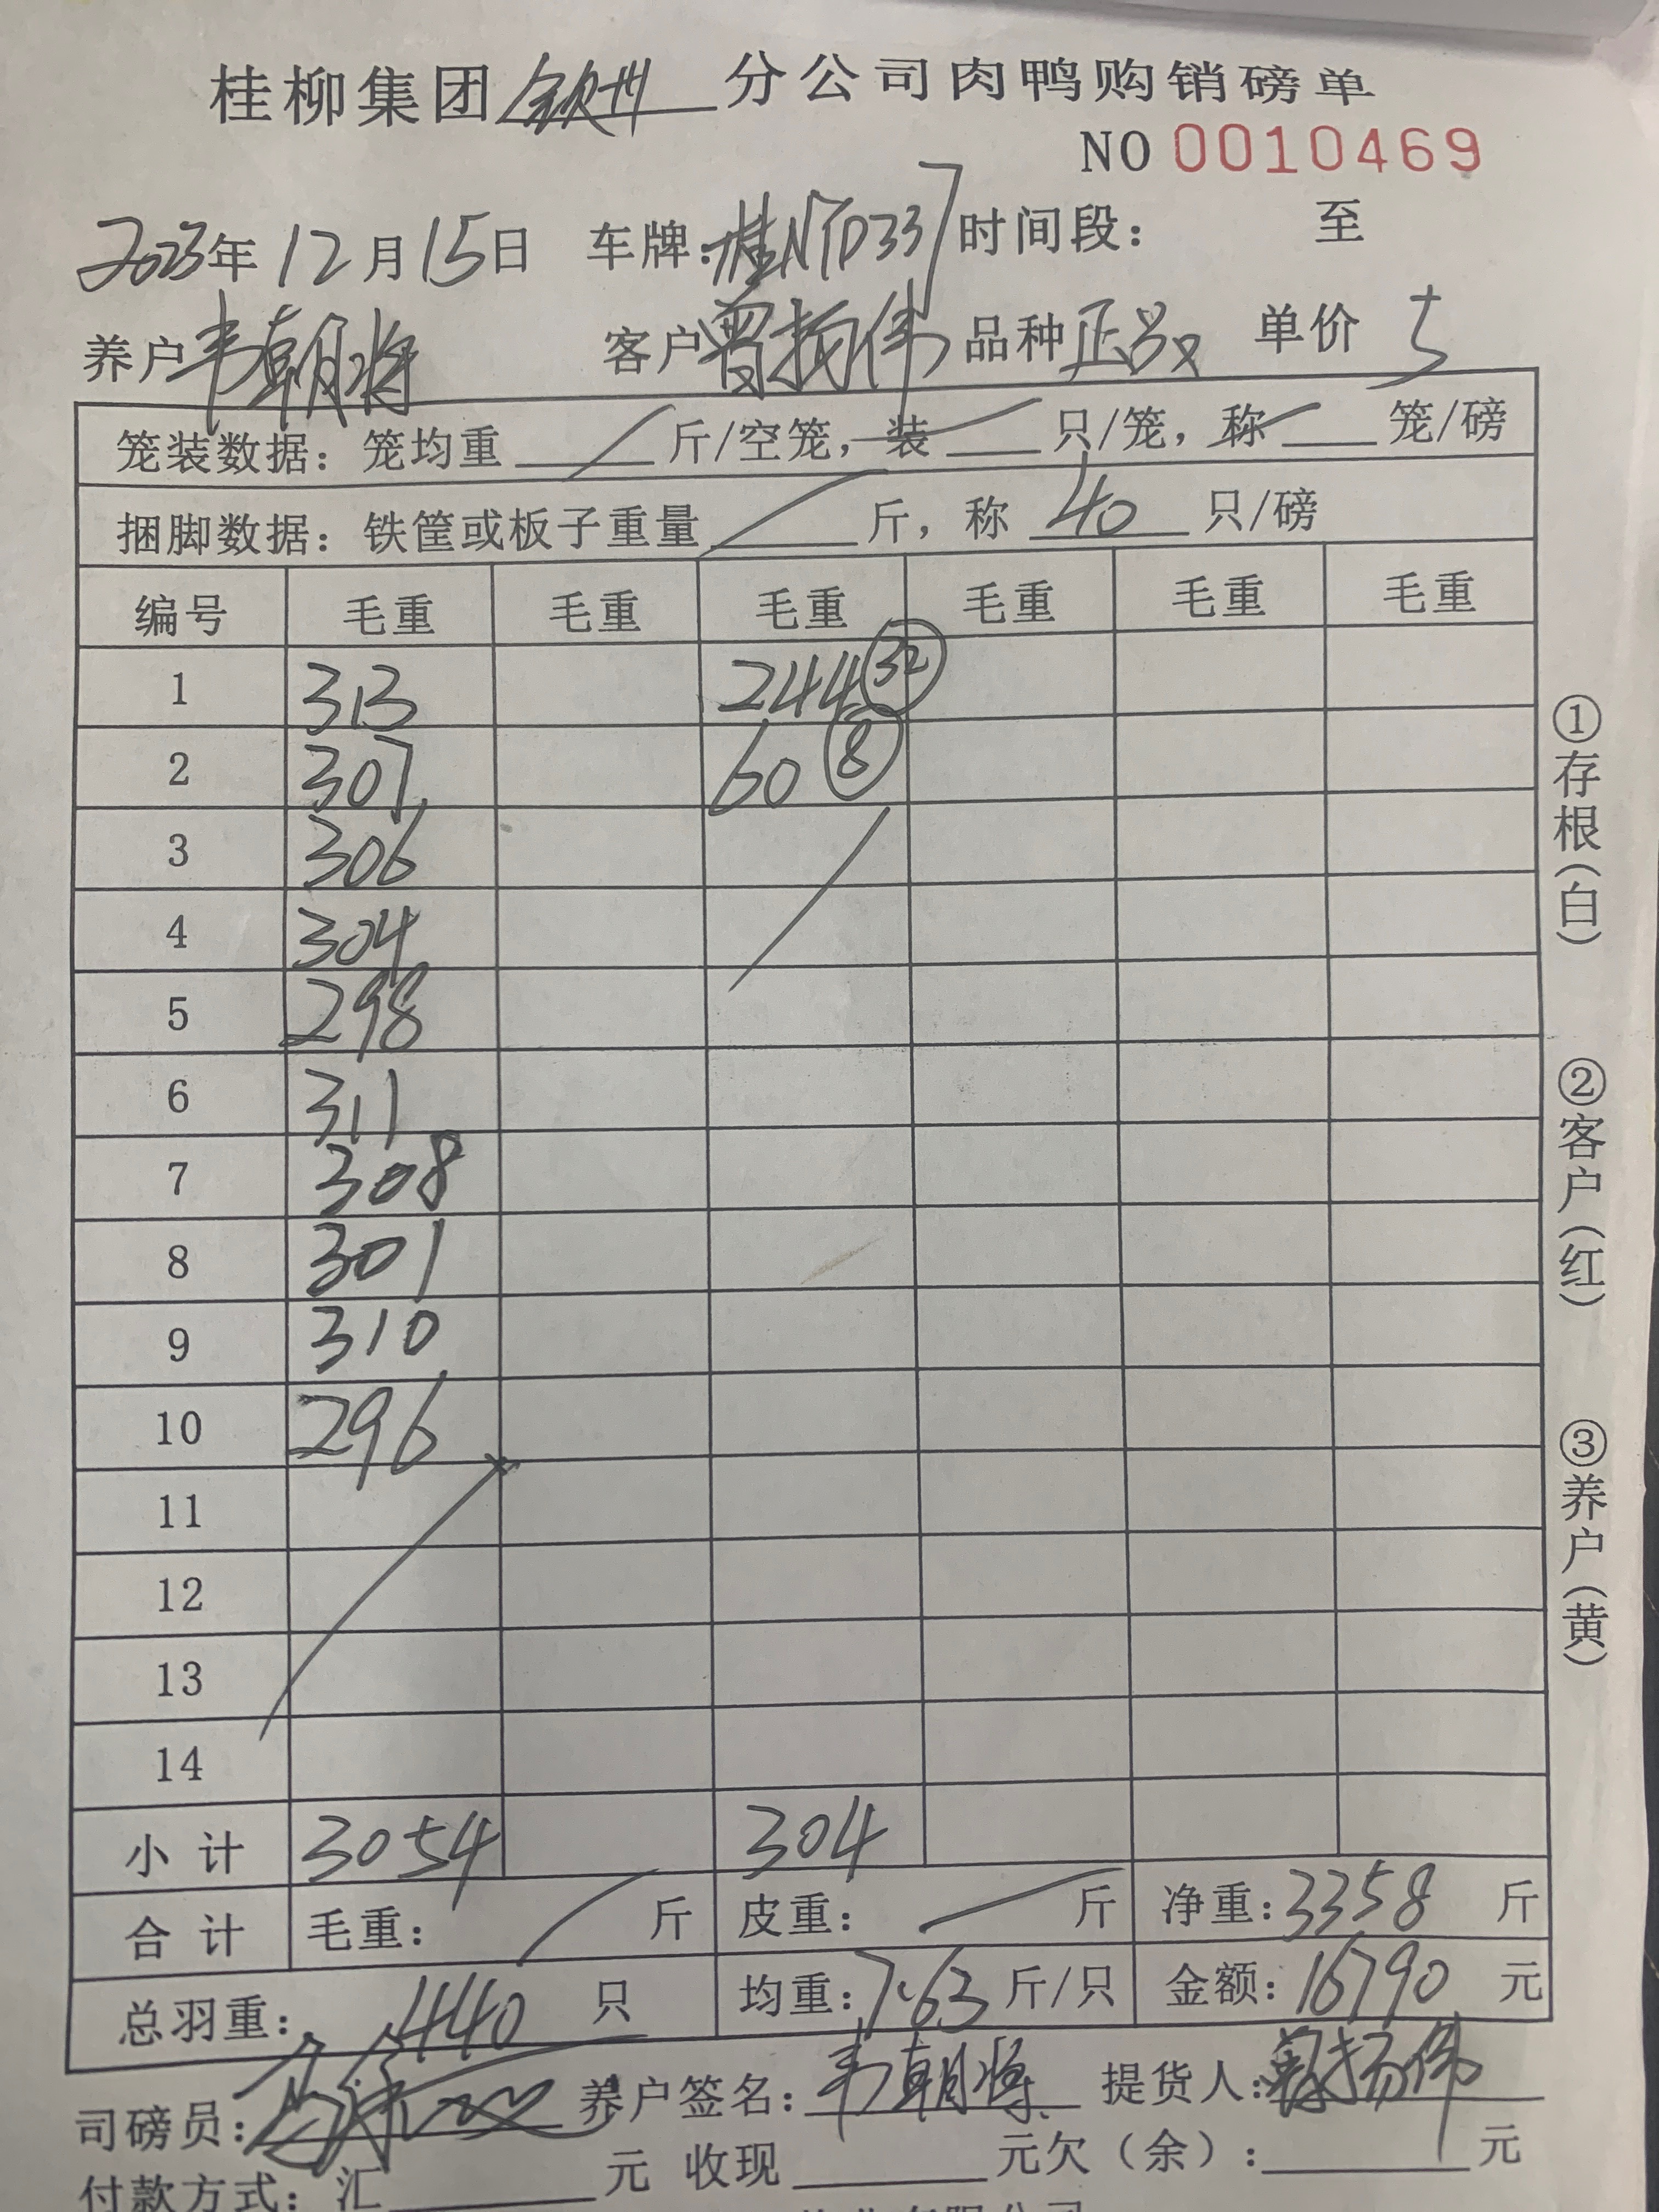 桂柳集团钦州分公司肉鸭购销磅单
NO 0010469
2023年12月15日 车牌:桂N 时间段: 至
养户韦朝将 客户曾扬伟 品种正品 单价 5
笼装数据:笼均重 斤/空笼,装 只/笼,称 笼/磅
捆脚数据:铁筐或板子重量 斤,称 40 只/磅
编号 毛重 毛重 毛重 毛重 毛重 毛重
1 313 244 32
2 307 60 8
3 306
4 304
5 298
6 311
7 308
8 301
9 310
10 296
11
12
13
14
小计 3054 304
合计 毛重: 斤 皮重: 斤 净重:3358 斤
总羽重: 440 只 均重:7.63 斤/只 金额:16790 元
司磅员: 养户签名:韦朝将 提货人:曾扬伟
付款方式:汇 元 收现 元欠(余): 元
①存根(白)
②客户(红)
③养户(黄)